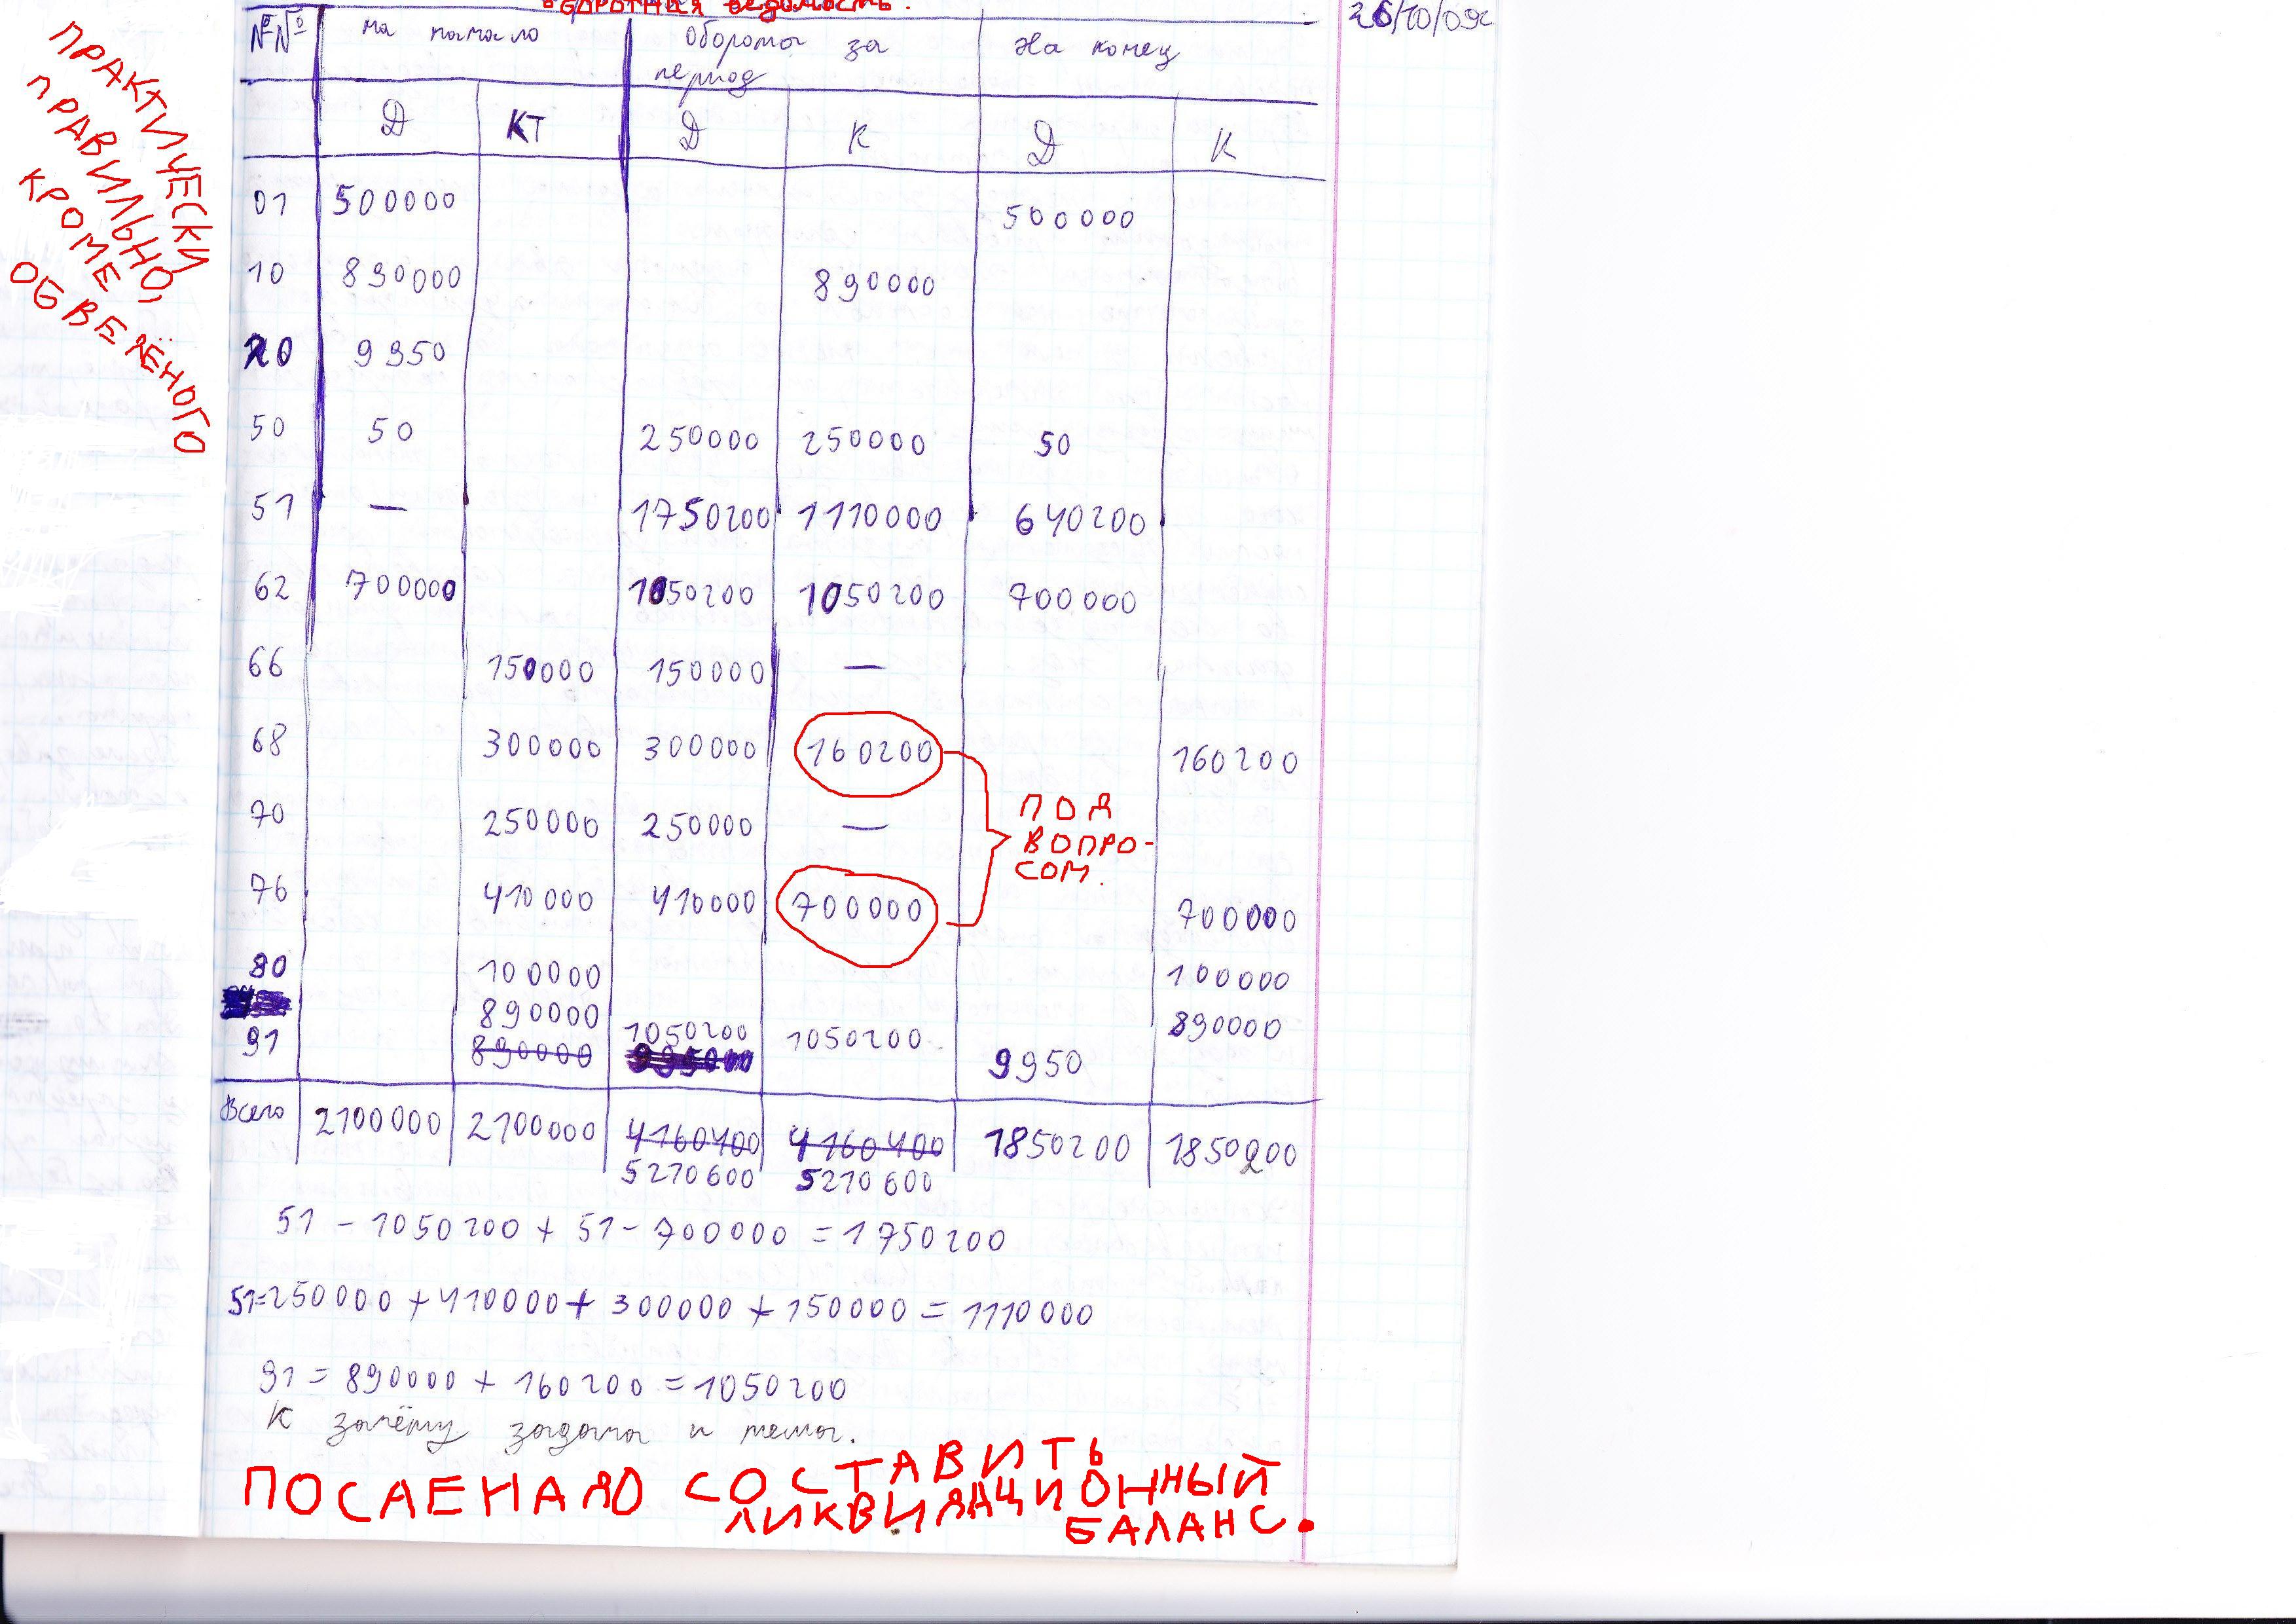 оборотная ведомость.
26/10/09г
ПРАКТИЧЕСКИ
ПРАВИЛЬНО,
КРОМЕ
ОБВЕДЁНОГО
№№ на начало Обороты за период На конец
Д КТ Д К Д К
01 500000 500000
10 890000 890000
20 9950
50 50 250000 250000 50
51 — 1750200 1110000 640200
62 700000 1050200 1050200 700000
66 150000 150000 —
68 300000 300000 160200 160200
70 250000 250000 —
76 410000 410000 700000 700000
ПОД
ВОПРО-
СОМ.
80 100000 100000
890000 890000
91 890000 1050200 1050200 9950
Всего 2100000 2100000 4160400 4160400 1850200 1850200
5210600 5210600
51 - 1050200 + 51 - 700000 = 1750200
51=250000 + 410000 + 300000 + 150000 = 1110000
91 = 890000 + 160200 = 1050200
К зачёту задачи и темы.
ПОСЛЕ НАДО СОСТАВИТЬ
ЛИКВИДАЦИОННЫЙ
БАЛАНС.